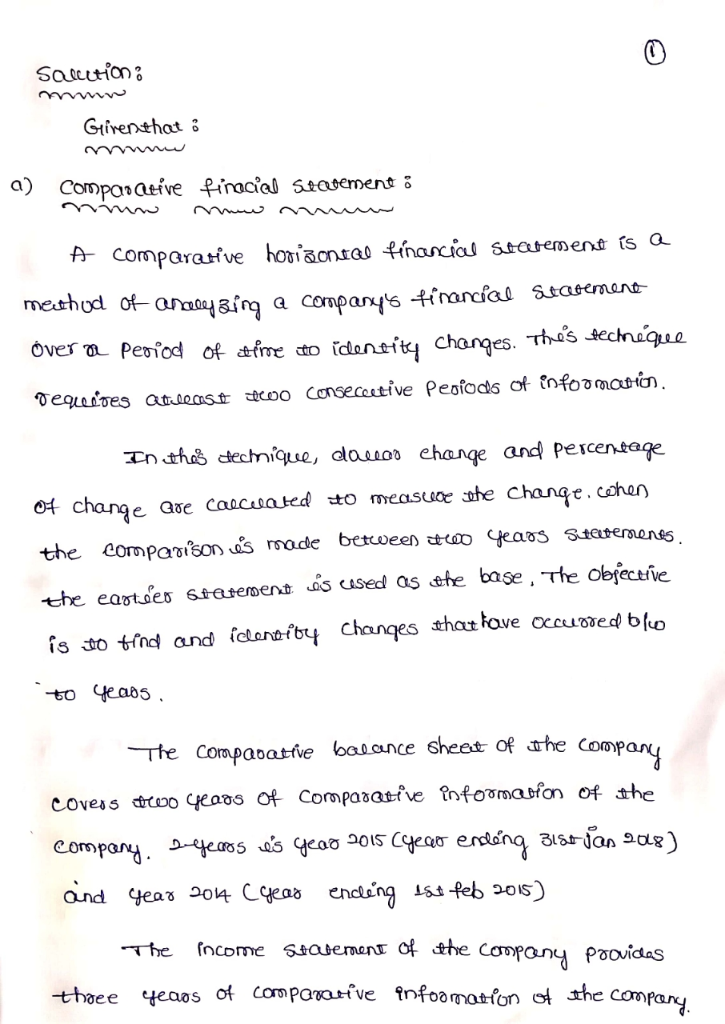 ①
Solution:
Given that :
a) Comparative finacial statement :
A comparative horizontal financial statement is a
method of analyzing a company's financial statement
over a period of time to identity changes. This technique
requires atleast two consecutive periods of information.
In this technique, dollar change and percentage
of change are calculated to measure the change. When
the comparison is made between two years statements.
the earlier statement is used as the base, The objective
is to find and identity changes that have occurred b/w
to years.
The comparative balance sheet of the company
covers two years of comparative information of the
company. 2-years is year 2015 (year ending 31st Jan 2018)
and year 2014 (year ending 1st feb 2015)
The income statement of the company provides
three years of comparative information of the company.